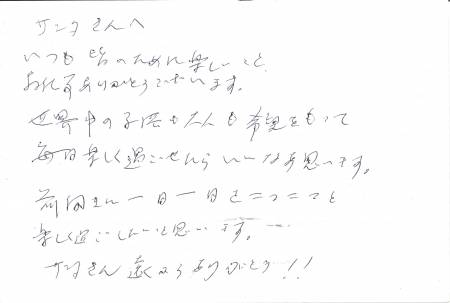 サンタさんへ
いつも皆のために楽しいこと、
お仕事ありがとうございます。
世界中の子供も大人も希望をもって
毎日楽しく過ごせたらいいなあ思います。
一日一日をニコニコと
楽しく過ごしたいと思います。
サンタさん遠くからありがとう!!